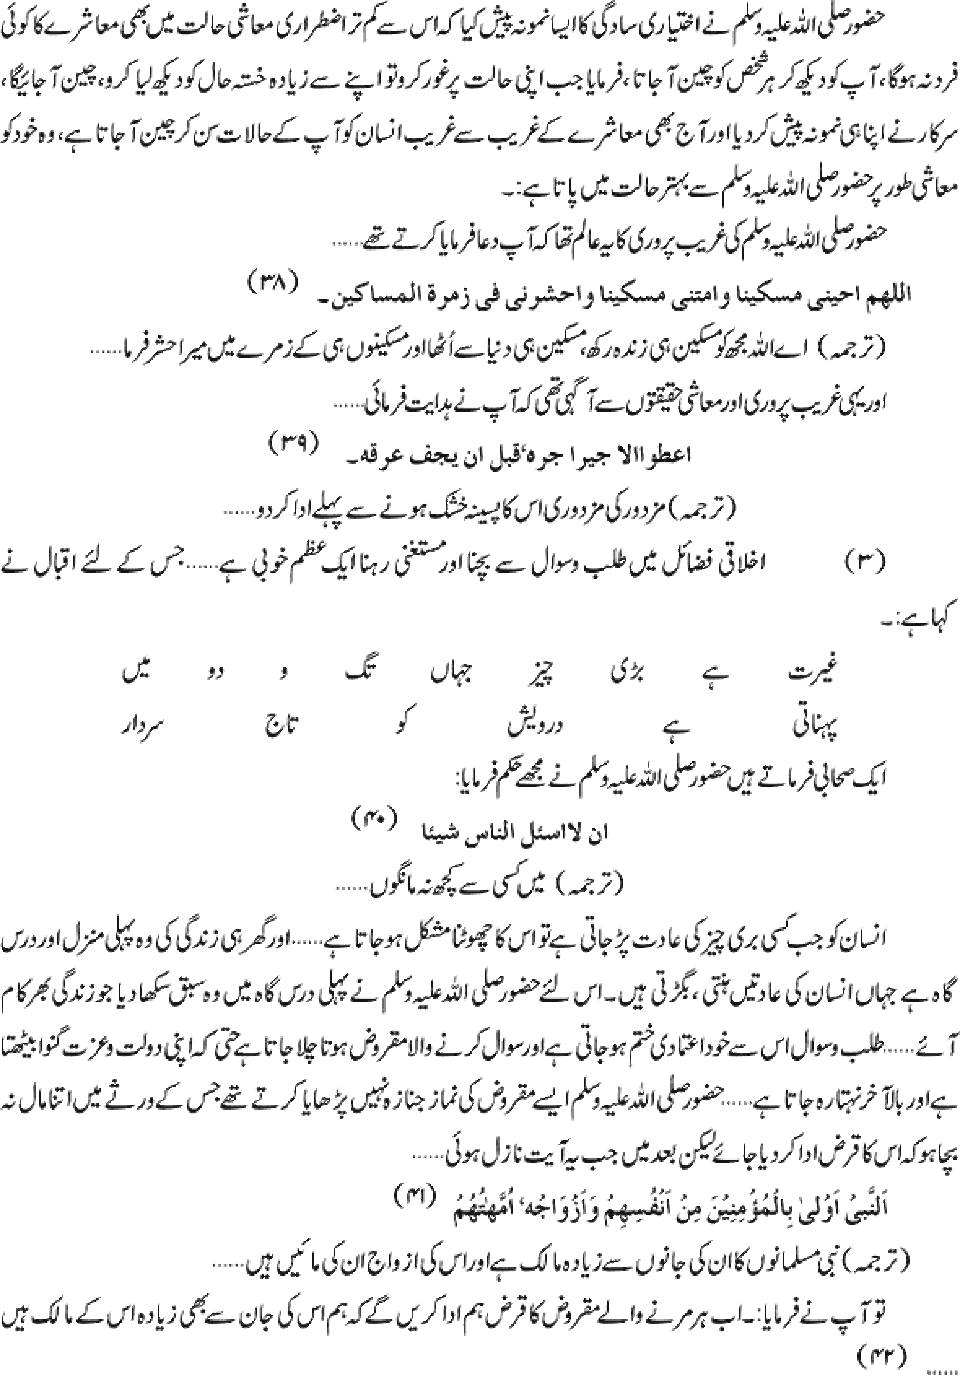 حضور صلی اللہ علیہ وسلم نے اختیاری سادگی کا ایسا نمونہ پیش کیا کہ اس سے کم تر اضطراری معاشی حالت میں بھی معاشرے کا کوئی
فرد نہ ہوگا، آپ کو دیکھ کر ہر شخص کو چین آ جاتا، فرمایا جب اپنی حالت پر غور کرو تو اپنے سے زیادہ خستہ حال کو دیکھ لیا کرو، چین آ جائیگا،
سرکار نے اپنا ہی نمونہ پیش کر دیا اور آج بھی معاشرے کے غریب سے غریب انسان کو آپ کے حالات سن کر چین آ جاتا ہے، وہ خود کو
معاشی طور پر حضور صلی اللہ علیہ وسلم سے بہتر حالت میں پاتا ہے:۔
حضور صلی اللہ علیہ وسلم کی غریب پروری کا یہ عالم تھا کہ آپ دعا فرمایا کرتے تھے......
اللھم احینی مسکینا و امتنی مسکینا و احشرنی فی زمرة المساکین۔ (۳۸)
(ترجمہ) اے اللہ مجھ کو مسکین ہی زندہ رکھ، مسکین ہی دنیا سے اُٹھا اور مسکینوں ہی کے زمرے میں میرا حشر فرما......
اور یہی غریب پروری اور معاشی حقیقتوں سے آگہی تھی کہ آپ نے ہدایت فرمائی......
اعطوا الا جیر ا جرہ، قبل ان یجف عرقه۔ (۳۹)
(ترجمہ) مزدور کی مزدوری اس کا پسینہ خشک ہونے سے پہلے ادا کر دو......
(۳) اخلاقی فضائل میں طلب و سوال سے بچنا اور مستغنی رہنا ایک عظم خوبی ہے......جس کے لئے اقبال نے
کہا ہے:۔
غیرت ہے بڑی چیز جہاں تگ و دو میں
پہناتی ہے درویش کو تاج سردار
ایک صحابی فرماتے ہیں حضور صلی اللہ علیہ وسلم نے مجھے حکم فرمایا:
ان لا اسئل الناس شیئا (۴۰)
(ترجمہ) میں کسی سے کچھ نہ مانگوں......
انسان کو جب کسی بری چیز کی عادت پڑ جاتی ہے تو اس کا چھوٹنا مشکل ہو جاتا ہے......اور گھر ہی زندگی کی وہ پہلی منزل اور درس
گاہ ہے جہاں انسان کی عادتیں بنتی، بگڑتی ہیں۔ اس لئے حضور صلی اللہ علیہ وسلم نے پہلی درس گاہ میں وہ سبق سکھا دیا جو زندگی بھر کام
آئے......طلب و سوال اس سے خود اعتمادی ختم ہو جاتی ہے اور سوال کرنے والا مقروض ہوتا چلا جاتا ہے حتی کہ اپنی دولت و عزت گنوا بیٹھتا
ہے اور بالآخر نہتا رہ جاتا ہے......حضور صلی اللہ علیہ وسلم ایسے مقروض کی نماز جنازہ نہیں پڑھایا کرتے تھے جس کے ورثے میں اتنا مال نہ
بچا ہو کہ اس کا قرض ادا کر دیا جائے لیکن بعد میں جب یہ آیت نازل ہوئی......
اَلنَّبِیُ اَوْلیٰ بِالْمُؤْمِنِیْنَ مِنْ اَنْفُسِهِمْ وَ اَزْوَاجُه، اُمَّهٰتُهُمْ (۴۱)
(ترجمہ) نبی مسلمانوں کا ان کی جانوں سے زیادہ مالک ہے اور اس کی ازواج ان کی مائیں ہیں......
تو آپ نے فرمایا:۔ اب ہر مرنے والے مقروض کا قرض ہم ادا کریں گے کہ ہم اس کی جان سے بھی زیادہ اس کے مالک ہیں
...... (۴۲)